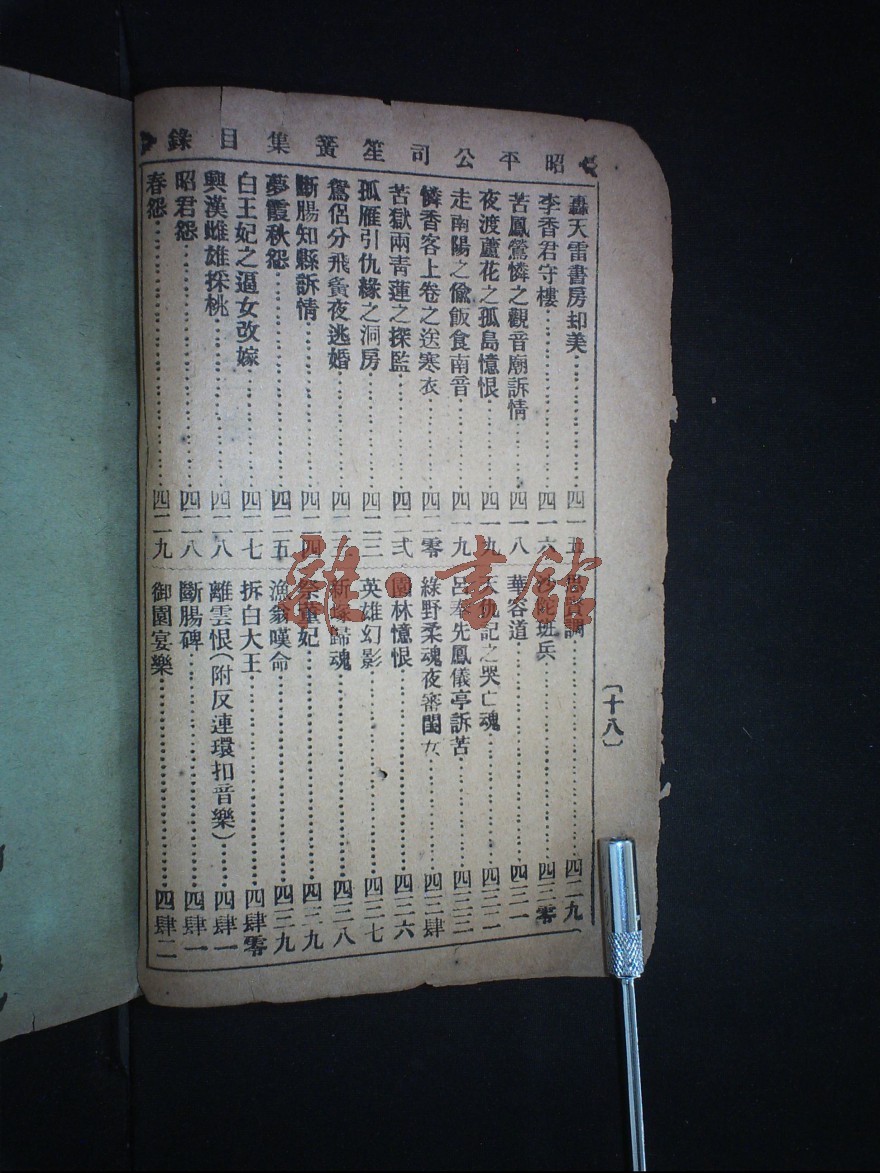 昭平公司笙簧集目錄
轟天雷書房却美……四一五
李香君守樓……四一六
苦鳳鶯憐之觀音廟訴情……四一八
夜渡蘆花之孤島憶恨……四一九
走南陽之偸飯食南音……四一九
憐香客上卷之送寒衣……四二零
苦獄兩靑蓮之探監……四二弍
孤雁引仇緣之洞房……四二三
鴛侶分飛賓夜逃婚……四二
斷腸知縣訴情……四二四
夢霞秋怨……四二五
白王妃之逼女改嫁……四二七
興漢雌雄採桃……四二八
昭君怨……四二八
春怨……四二九
思賢調……四二九
沙陀班兵……四三零
華容道……四三一
天仇記之哭亡魂……四三二
呂奉先鳳儀亭訴苦……四三三
綠野柔魂夜審閨女……四三肆
園林憶恨……四三六
英雄幻影……四三七
新墳歸魂……四三八
祭董妃……四三九
漁翁嘆命……四三九
拆白大王……四肆零
離雲恨(附反連環扣音樂)……四肆一
斷腸碑……四肆一
御園宴樂……四肆二
〔十八〕
雜·書館